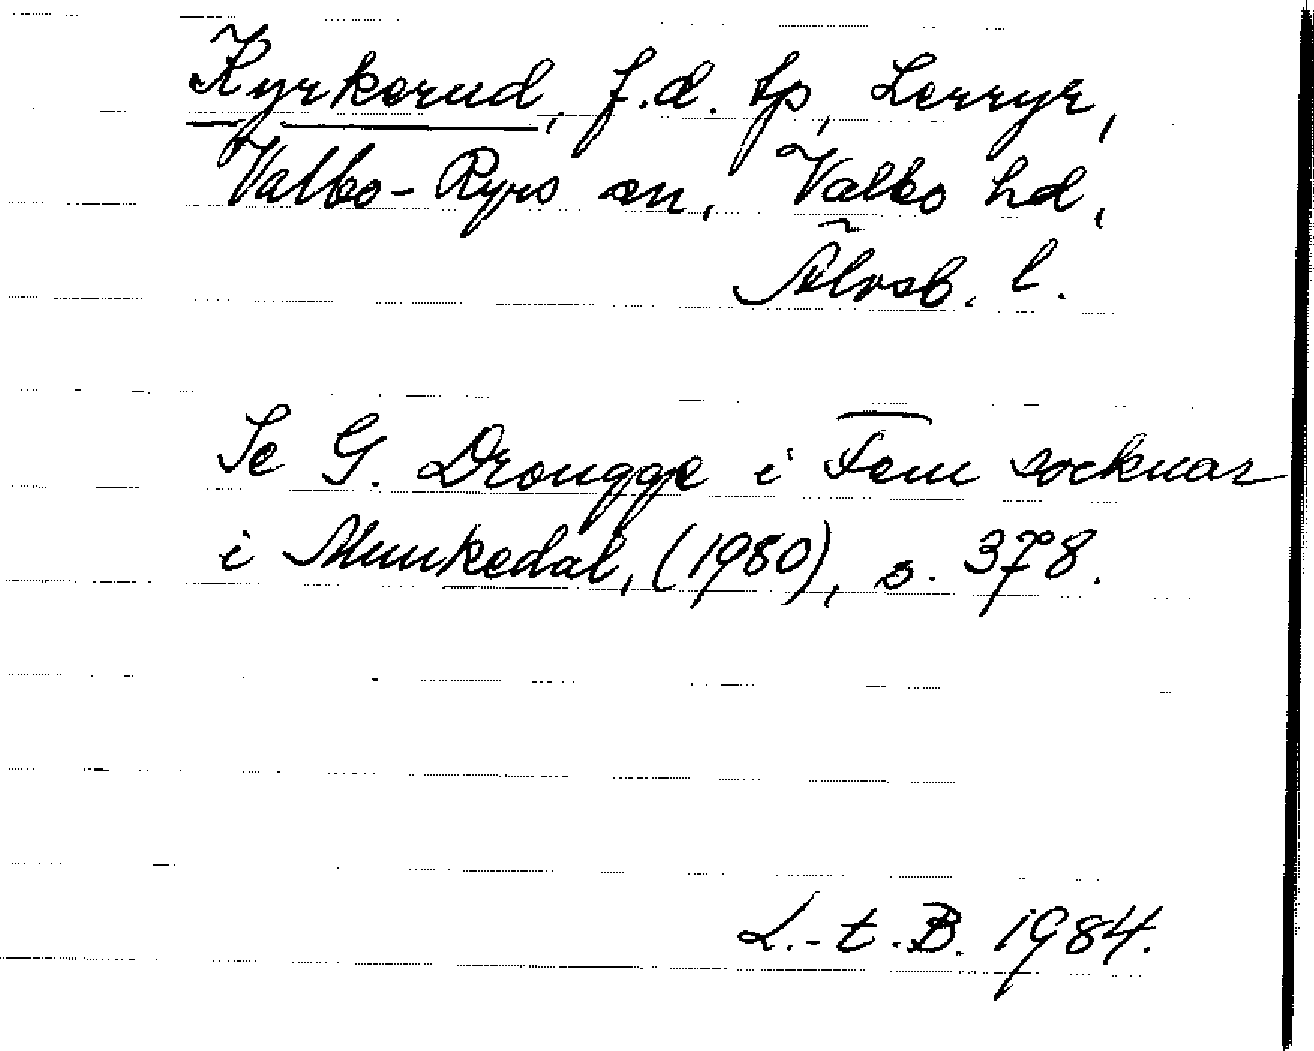 Kyrkerud, f.d. tp, Lerryr,
Valbo-Ryrs sn, Valbo hd,
Älvsb. l.
Se G. Drougge i Fem socknar
i Munkedal, (1980), s. 378.
L.-t.B. 1984.